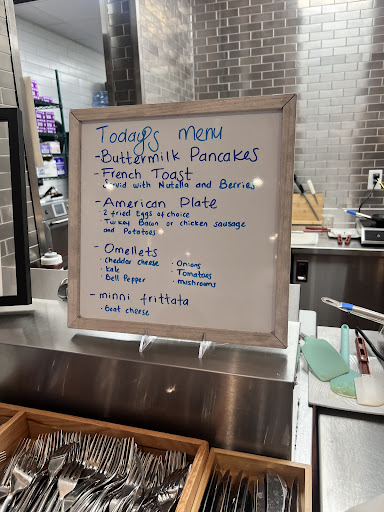 Today's menu
- Buttermilk Pancakes
- French Toast
Servid with Nutella and Berries
- American Plate
· 2 fried Eggs of choice
· Turkey Bacon or chicken sausage
and Potatoes
- Omellets
· cheddar cheese · Onions
· kale · Tomatoes
· Bell Pepper · mushrooms
- minni frittata
· Goat cheese